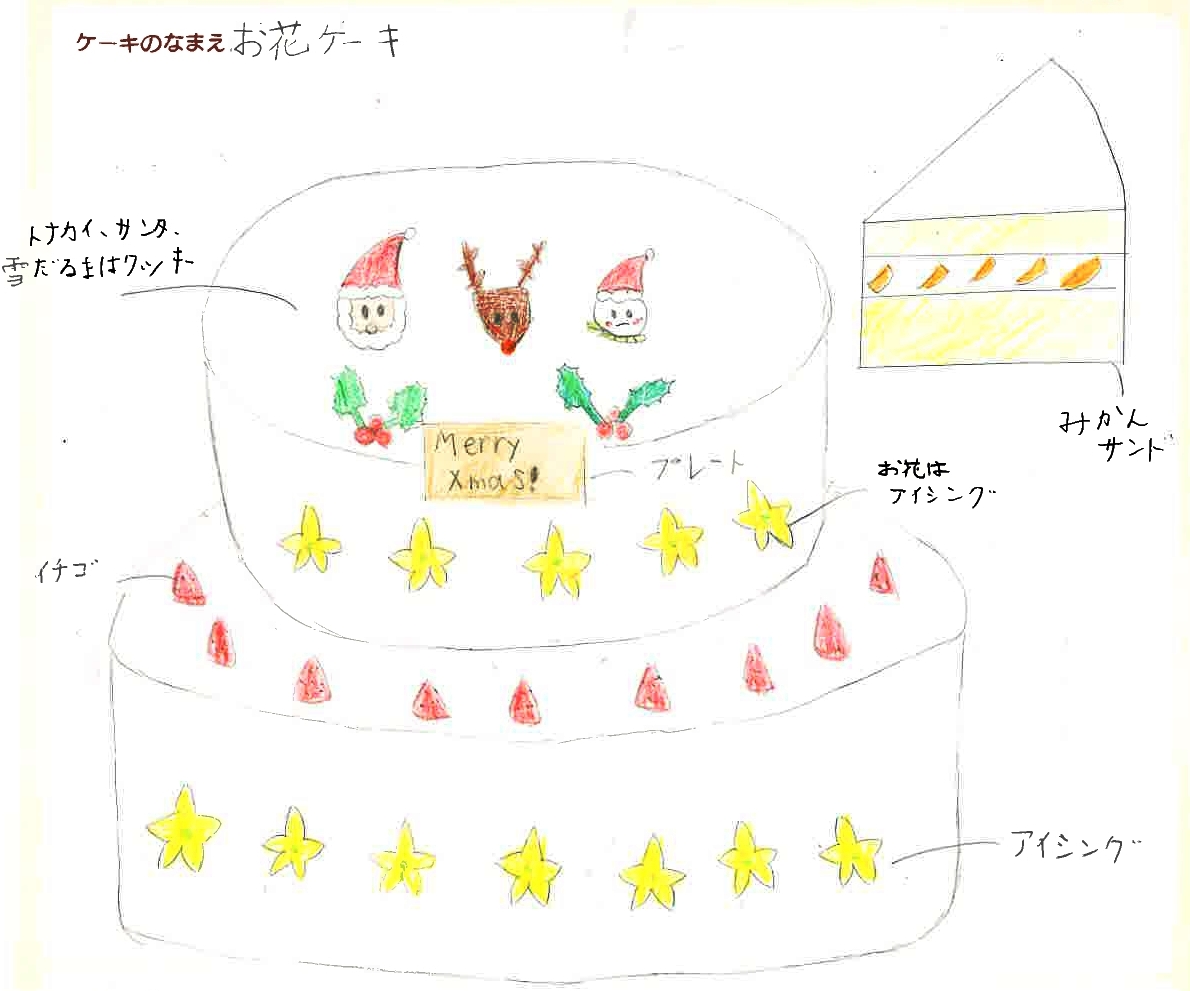 ケーキのなまえ お花ケーキ
トナカイ、サンタ、
雪だるまはクッキー
みかん
サンド
Merry
Xmas!
プレート
お花は
アイシング
イチゴ
アイシング